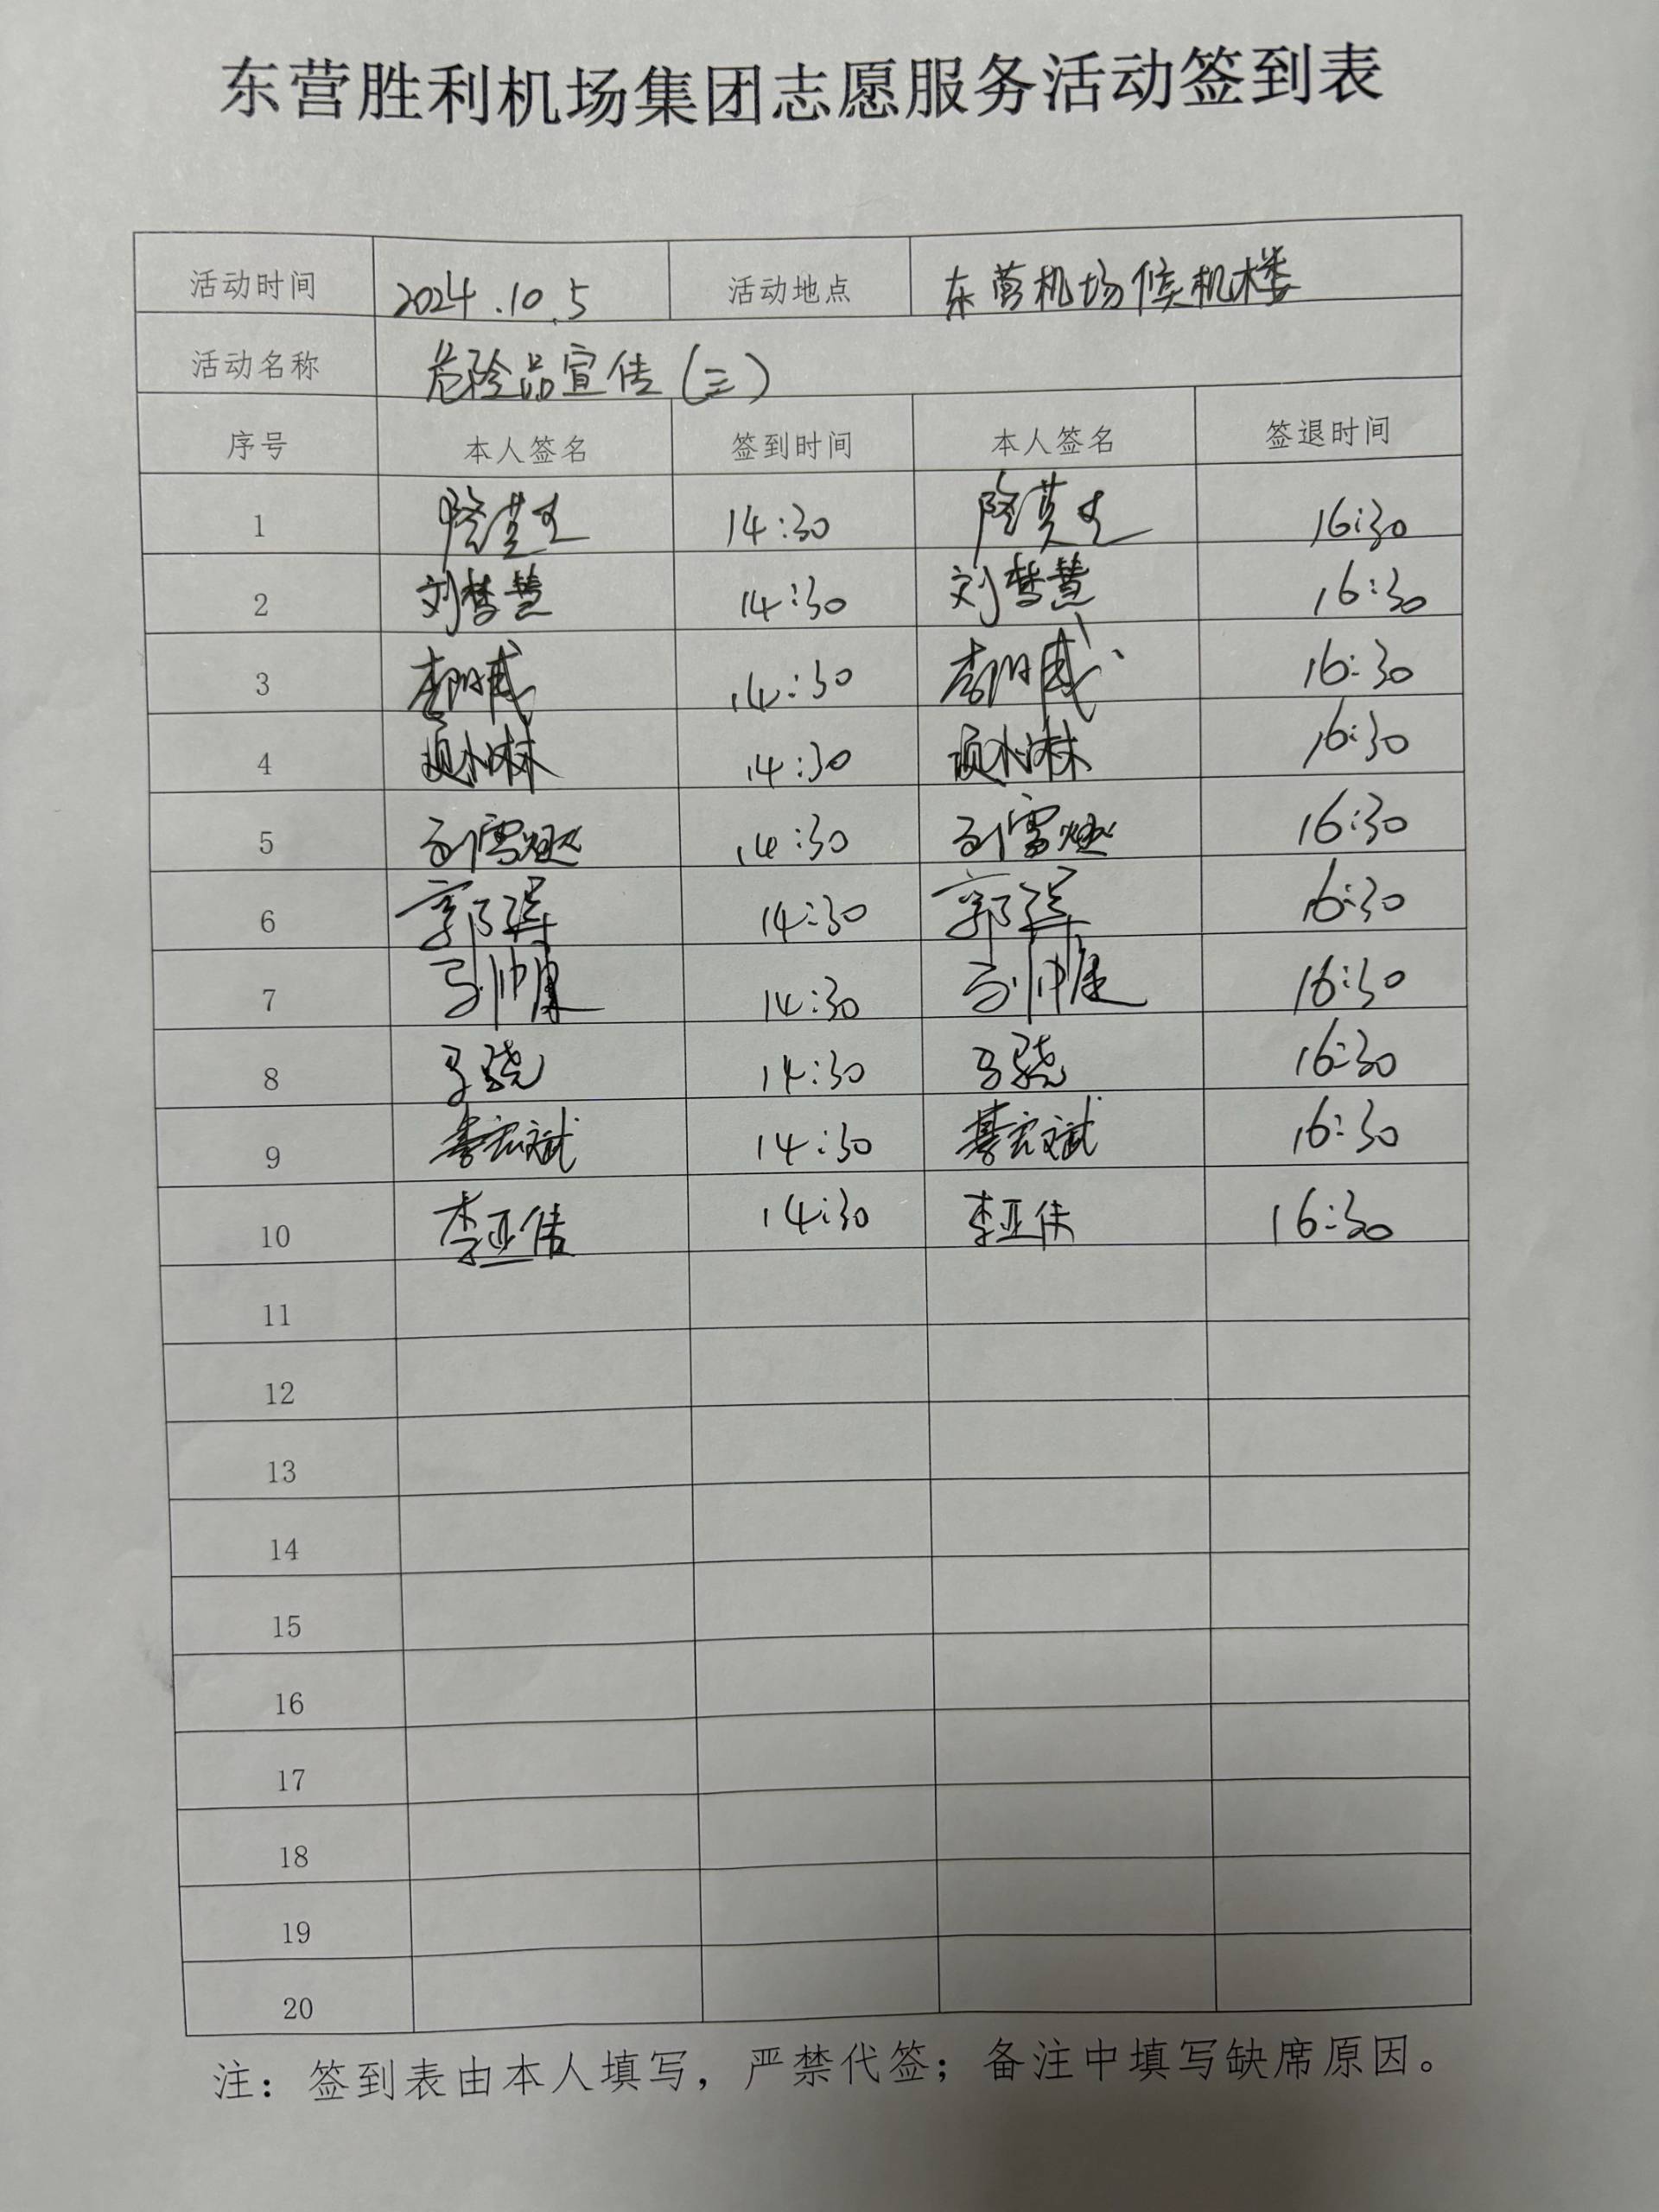 东营胜利机场集团志愿服务活动签到表
活动时间 2024.10.5 活动地点 东营机场候机楼
活动名称 危险品宣传(三)
序号 本人签名 签到时间 本人签名 签退时间
1 14:30 16:30
2 刘梦慧 14:30 刘梦慧 16:30
3 14:30 16:30
4 14:30 16:30
5 14:30 16:30
6 14:30 16:30
7 14:30 16:30
8 马骁 14:30 马骁 16:30
9 14:30 16:30
10 李亚伟 14:30 李亚伟 16:30
11
12
13
14
15
16
17
18
19
20
注：签到表由本人填写，严禁代签；备注中填写缺席原因。